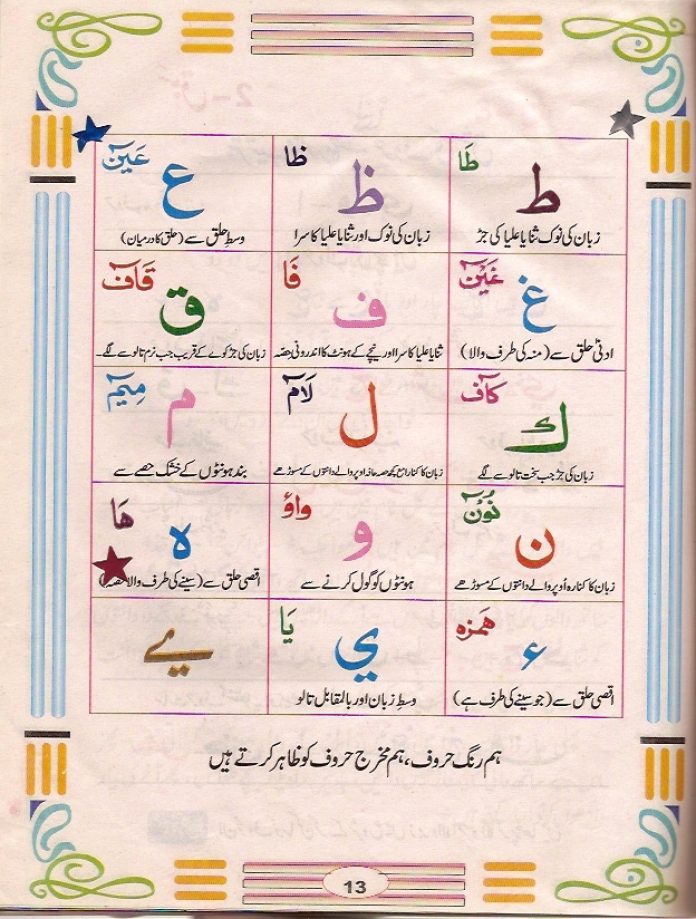 طَا
ط
زبان کی نوک ثنایا علیا کی جڑ
ظا
ظ
زبان کی نوک اور ثنایا علیا کا سرا
عَيۡنٓ
ع
وسطِ حلق سے (حلق کا درمیان)
غَيۡنٓ
غ
ادنیٰ حلق سے (منہ کی طرف والا)
فَا
ف
ثنایا علیا کا سرا اور نیچے کے ہونٹ کا اندرونی حصّہ
قَافٓ
ق
زبان کی جڑ کوے کے قریب جب نرم تالو سے لگے۔
كَافٓ
ك
زبان کی جڑ جب سخت تالو سے لگے
لَامٓ
ل
زبان کا کنارا مع کچھ حصہ حافہ اوپر والے دانتوں کے مسوڑھے
مِيمٓ
م
بند ہونٹوں کے خشک حصے سے
نُوۡنٓ
ن
زبان کا کنارہ اُوپر والے دانتوں کے مسوڑھے
واوٓ
و
ہونٹوں کو گول کرنے سے
هَا
ہ
اقصیٰ حلق سے (سینے کی طرف والا حصّہ)
ھمزہ
ء
اقصیٰ حلق سے (جو سینے کی طرف ہے)
يَا
ي
وسطِ زبان اور بالمقابل تالو
ے
ہم رنگ حروف، ہم مخرج حروف کو ظاہر کرتے ہیں
13